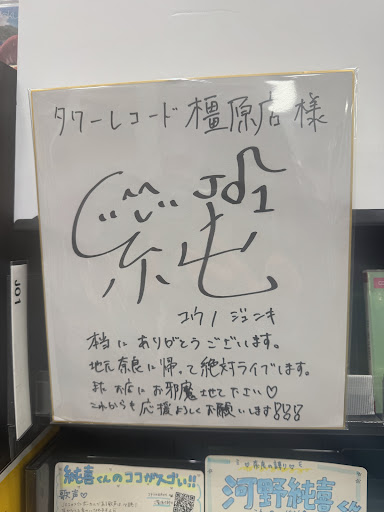 タワーレコード 橿原店 様
JO1
純
コウノ ジュンキ
本当に ありがとうございます。
地元奈良に帰って絶対ライブします。
また お店に お邪魔させてください♡
これからも 応援よろしくお願いします!!!
JO1
純喜くんのココがスゴい!!
歌声♡
河野純喜